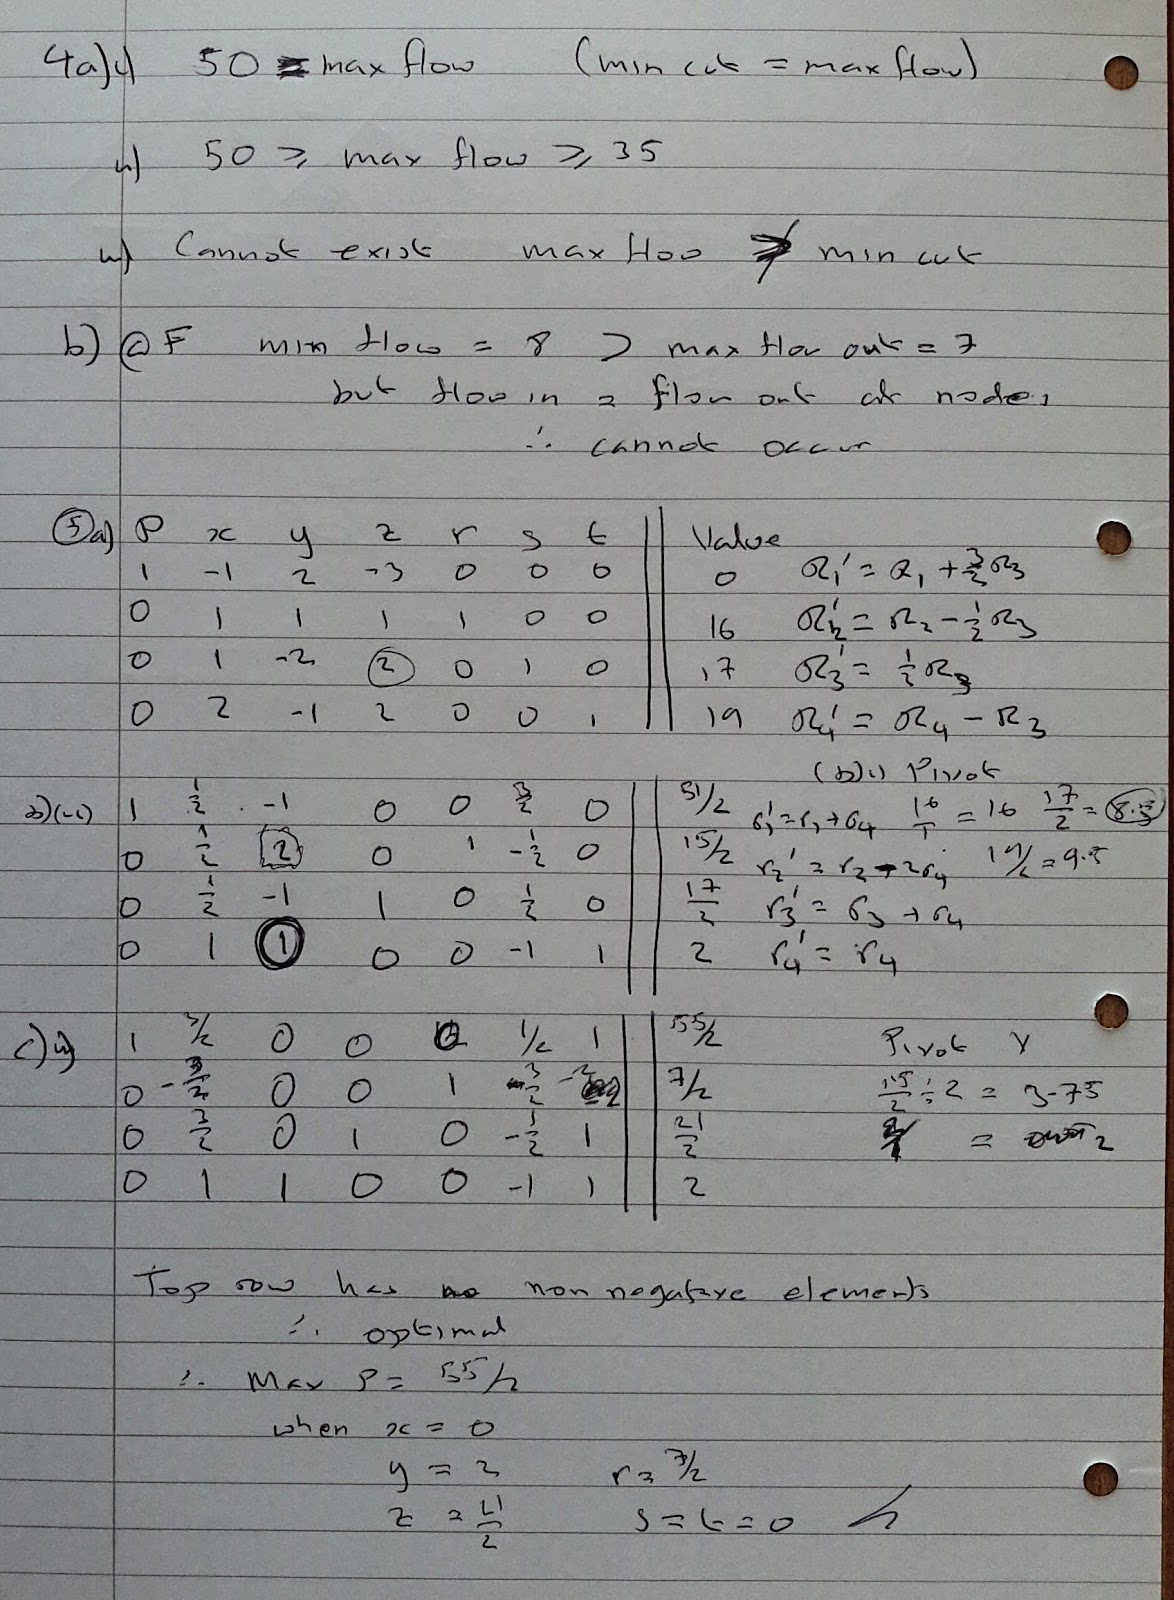 4a)i) 50 = max flow (min cut = max flow)
ii) 50 ≥ max flow ≥ 35
iii) Cannot exist max flow ≯ min cut
b) @ F min flow = 8 > max flow out = 7
but flow in = flow out at nodes,
∴ cannot occur
⑤a) P x y z r s t Value
1 -1 2 -3 0 0 0 0 R₁' = R₁ + 3/2 R₃
0 1 1 1 1 0 0 16 R₂' = R₂ - 1/2 R₃
0 1 -2 ② 0 1 0 17 R₃' = 1/2 R₃
0 2 -1 2 0 0 1 19 R₄' = R₄ - R₃
(b)i) Pivot
b)(ii) 1 1/2 -1 0 0 3/2 0 51/2 r₁' = r₁ + r₄ 16/1 = 16 17/2 = 8.5
0 1/2 2 0 1 -1/2 0 15/2 r₂' = r₂ - 2r₄ 19/2 = 9.5
0 1/2 -1 1 0 1/2 0 17/2 r₃' = r₃ + r₄
0 1 ① 0 0 -1 1 2 r₄' = r₄
c)ii) 1 3/2 0 0 0 1/2 1 55/2 Pivot Y
0 -3/2 0 0 1 3/2 -2 7/2 15/2 ÷ 2 = 3.75
0 3/2 0 1 0 -1/2 1 21/2 = 2
0 1 1 0 0 -1 1 2
Top row has non negative elements
∴ optimal
∴ Max P = 55/2
when x = 0
y = 2 r = 7/2
z = 21/2 s = t = 0